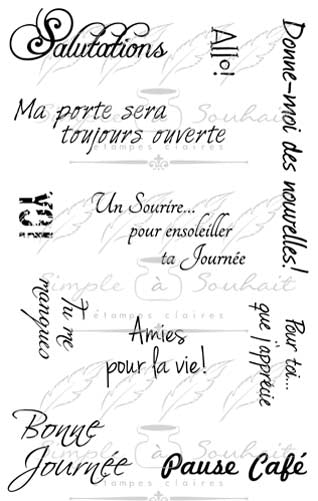 Salutations
Allo!
Donne-moi des nouvelles!
Ma porte sera
toujours ouverte
YO!
Un Sourire...
pour ensoleiller
ta Journée
Tu me
manques
Amies
pour la vie!
Pour toi...
que j'apprécie
Bonne
Journée
Pause Café
Simple à Souhait
étampes claires
Simple à Souhait
étampes claires
Simple à Souhait
étampes claires